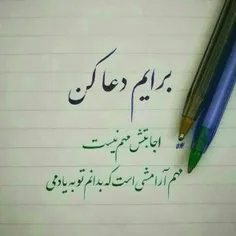 برایم دعا کن
اجابتش مهم نیست
مهم آرامشی است که بدانم تو به یادمی